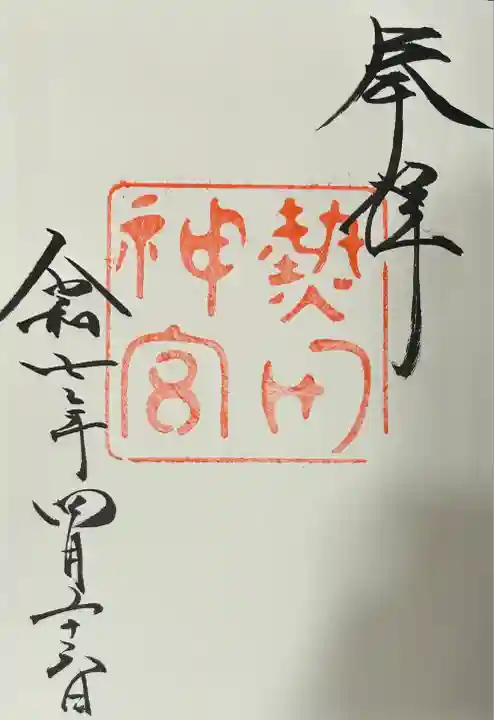 奉拝
熱田
神宮
令和七年四月二十六日